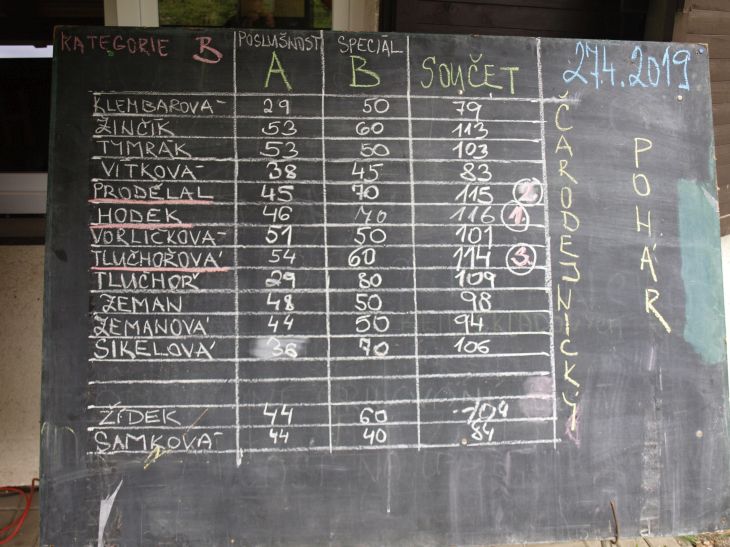 KATEGORIE B POSLUŠNOST A SPECIÁL B SOUČET 27.4.2019
KLEMBAROVÁ 29 50 79
ŽINČÍK 53 60 113
TYMRÁK 53 50 103
VÍTKOVÁ 38 45 83
PRODĚLAL 45 70 115 2.
HODEK 46 70 116 1.
VORLÍČKOVÁ 51 50 101
TLUCHOŘOVÁ 54 60 114 3.
TLUCHOŘ 29 80 109
ZEMAN 48 50 98
ZEMANOVÁ 44 50 94
SIKELOVÁ 36 70 106
ŽÍDEK 44 60 104
SAMKOVÁ 44 40 84
ČARODEJNICKÝ
POHÁR